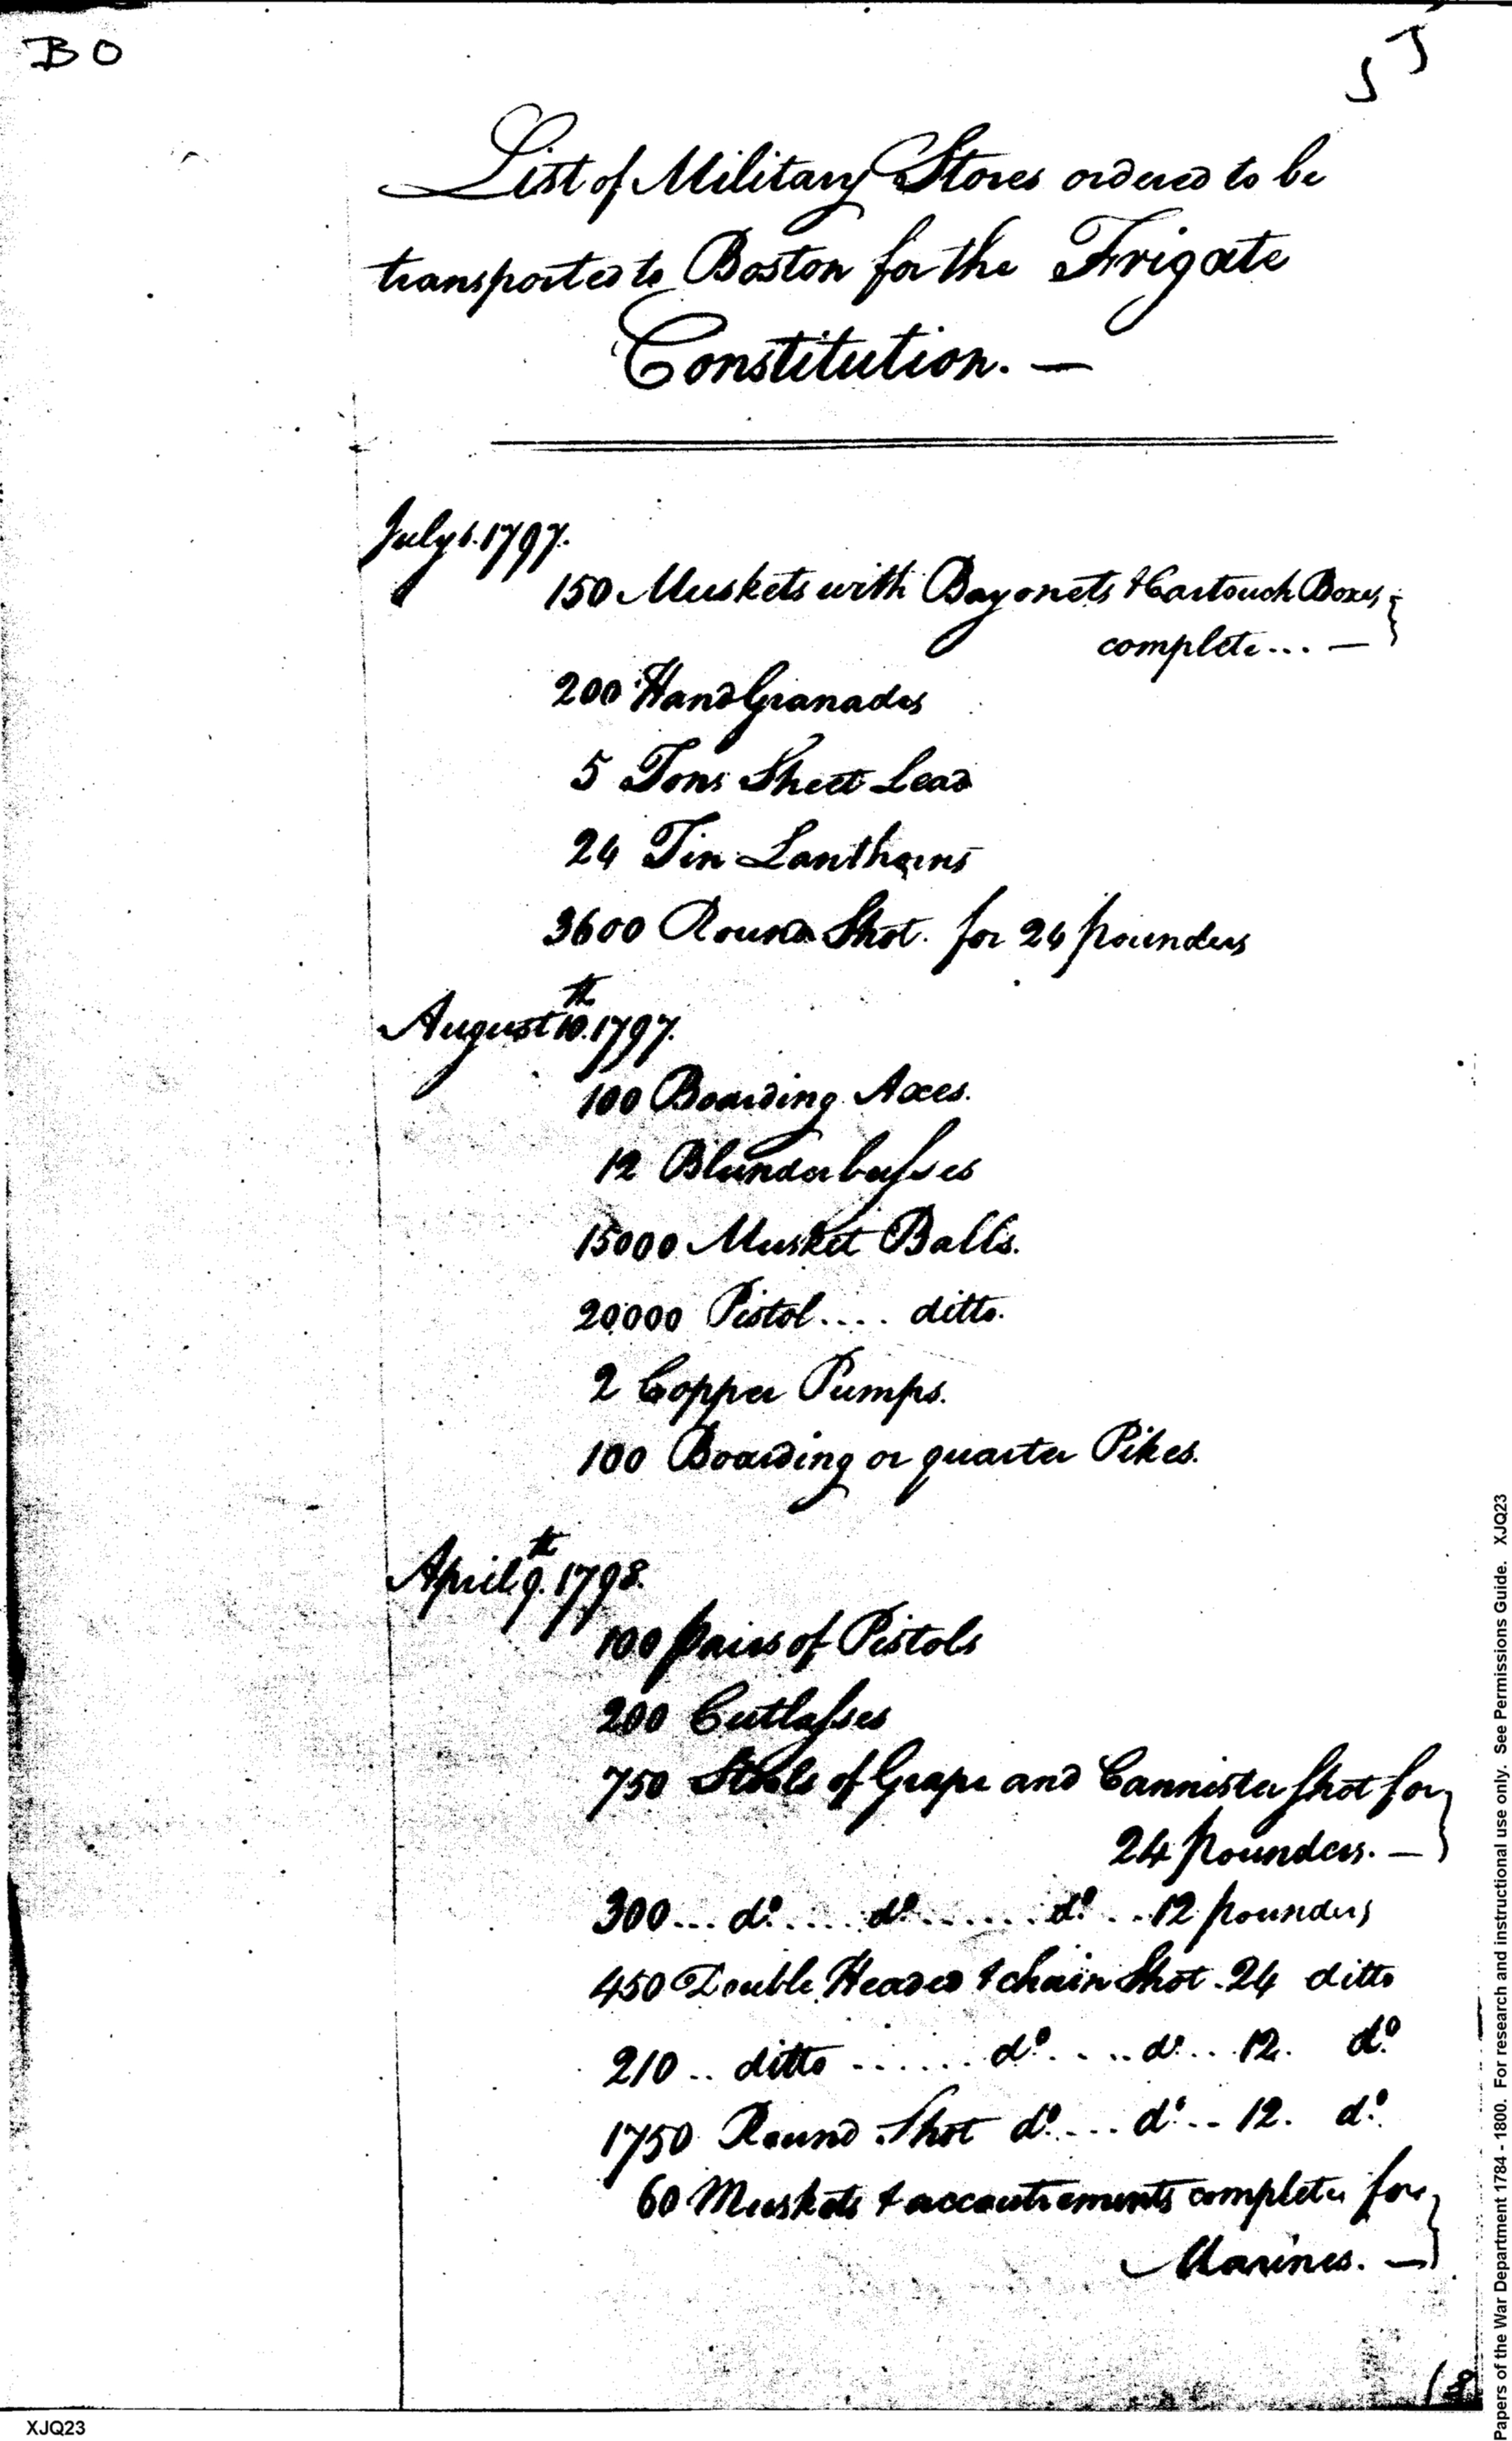 BO
List of Military Stores ordered to be
transported to Boston for the Frigate
Constitution. —
July 6. 1797.
150 Muskets with Bayonets & Cartouch Boxes
complete... —
200 Hand Granades
5 Tons Sheet Lead
24 Tin Lanthorns
3600 Round Shot. for 24 pounders
August 10.th 1797.
100 Boarding Axes.
12 Blunderbusses
15000 Musket Balls.
20,000 Pistol.... ditto.
2 Copper Pumps.
100 Boarding or quarter Pikes.
April 9.th 1798.
100 pairs of Pistols
200 Cutlasses
750 Stools of Grape and Cannister shot for
24 pounders. —
300... do..... do....... do... 12 pounders
450 Double Headed & chain Shot. 24 ditto
210.. ditto ....... do..... do... 12. do.
1750 Round Shot do.... do... 12. do.
60 Muskets & accoutrements complete for
Marines. —
18
XJQ23
Papers of the War Department 1784 - 1800. For research and instructional use only. See Permissions Guide. XJQ23